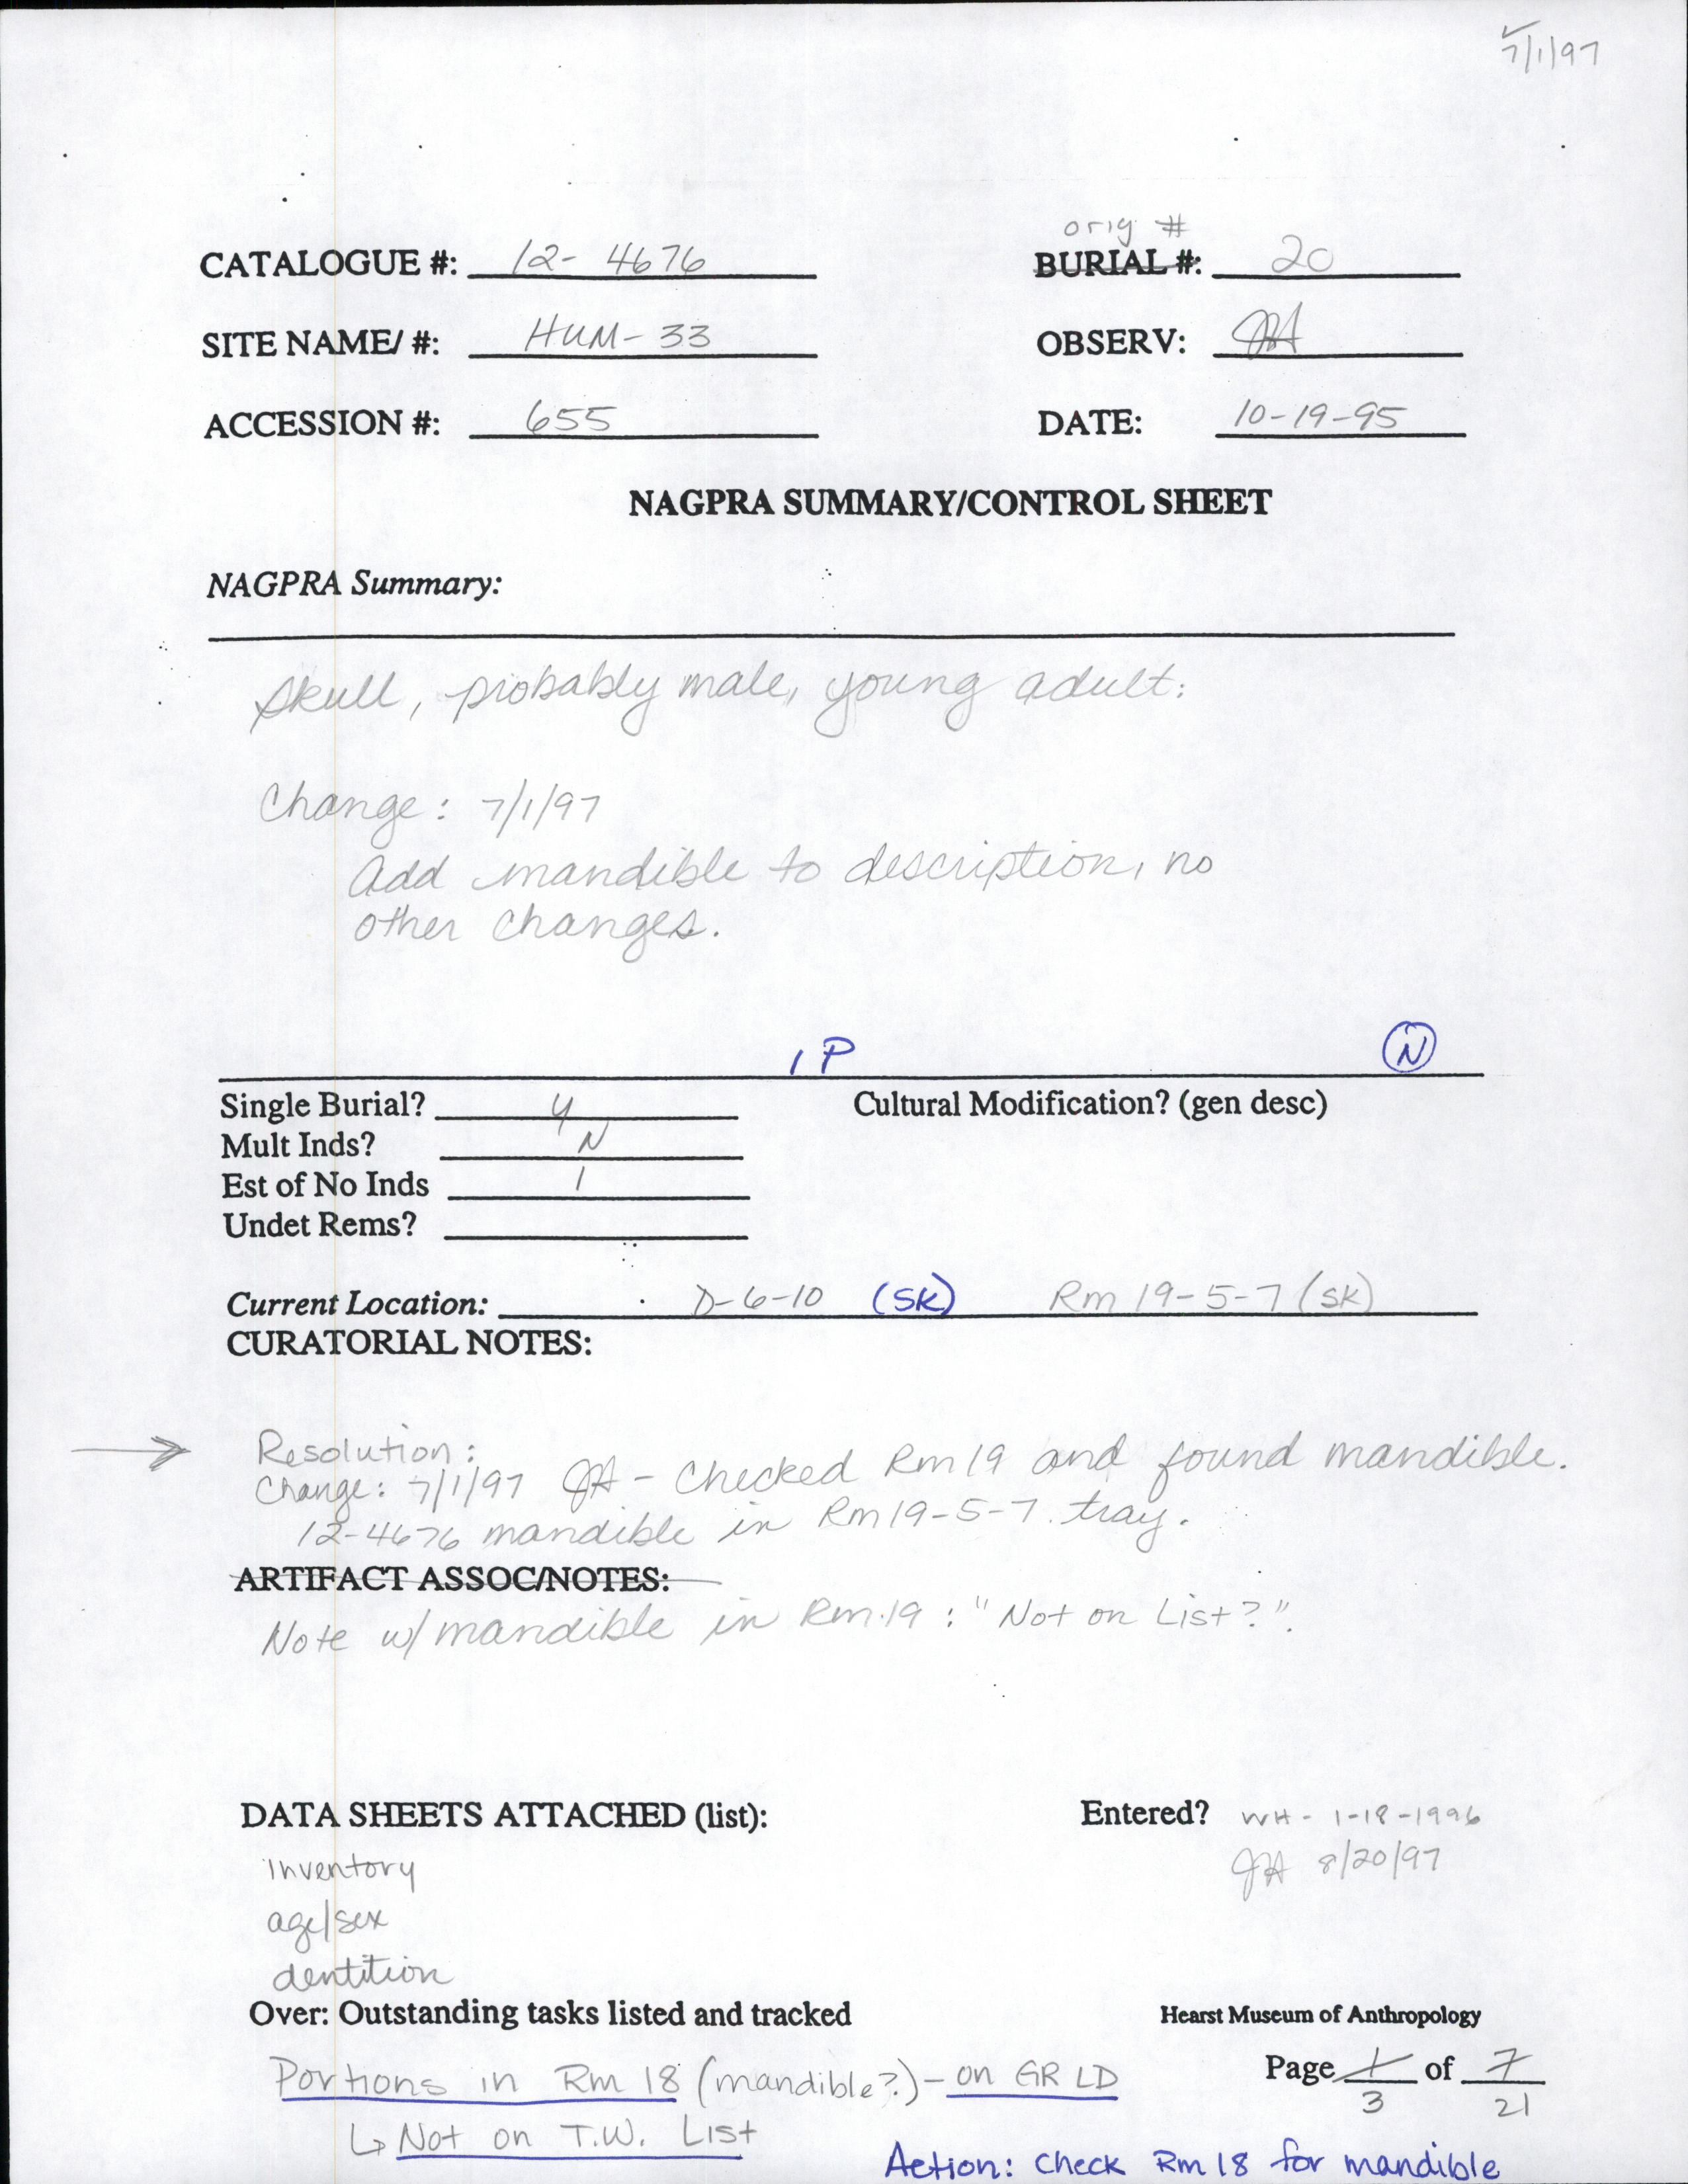 7/1/97
orig #
CATALOGUE #: 12- 4676 BURIAL #: 20
SITE NAME/ #: HUM-33 OBSERV: JA
ACCESSION #: 655 DATE: 10-19-95
NAGPRA SUMMARY/CONTROL SHEET
NAGPRA Summary:
Skull, probably male, young adult.
Change: 7/1/97
Add mandible to description, no
other changes.
1 P N
Single Burial? Y Cultural Modification? (gen desc)
Mult Inds? N
Est of No Inds 1
Undet Rems?
Current Location: D-6-10 (SK) Rm 19-5-7 (SK)
CURATORIAL NOTES:
→ Resolution:
Change: 7/1/97 JA - Checked Rm 19 and found mandible.
12-4676 mandible in Rm 19-5-7 tray.
ARTIFACT ASSOC/NOTES:
Note w/ mandible in Rm 19 : "Not on List?".
DATA SHEETS ATTACHED (list): Entered? WH - 1-18-1996
inventory JA 8/20/97
age/sex
dentition
Over: Outstanding tasks listed and tracked Hearst Museum of Anthropology
Portions in Rm 18 (mandible?) - on GR LD Page 1 of 7
3 21
↳ Not on T.W. List
Action: Check Rm 18 for mandible